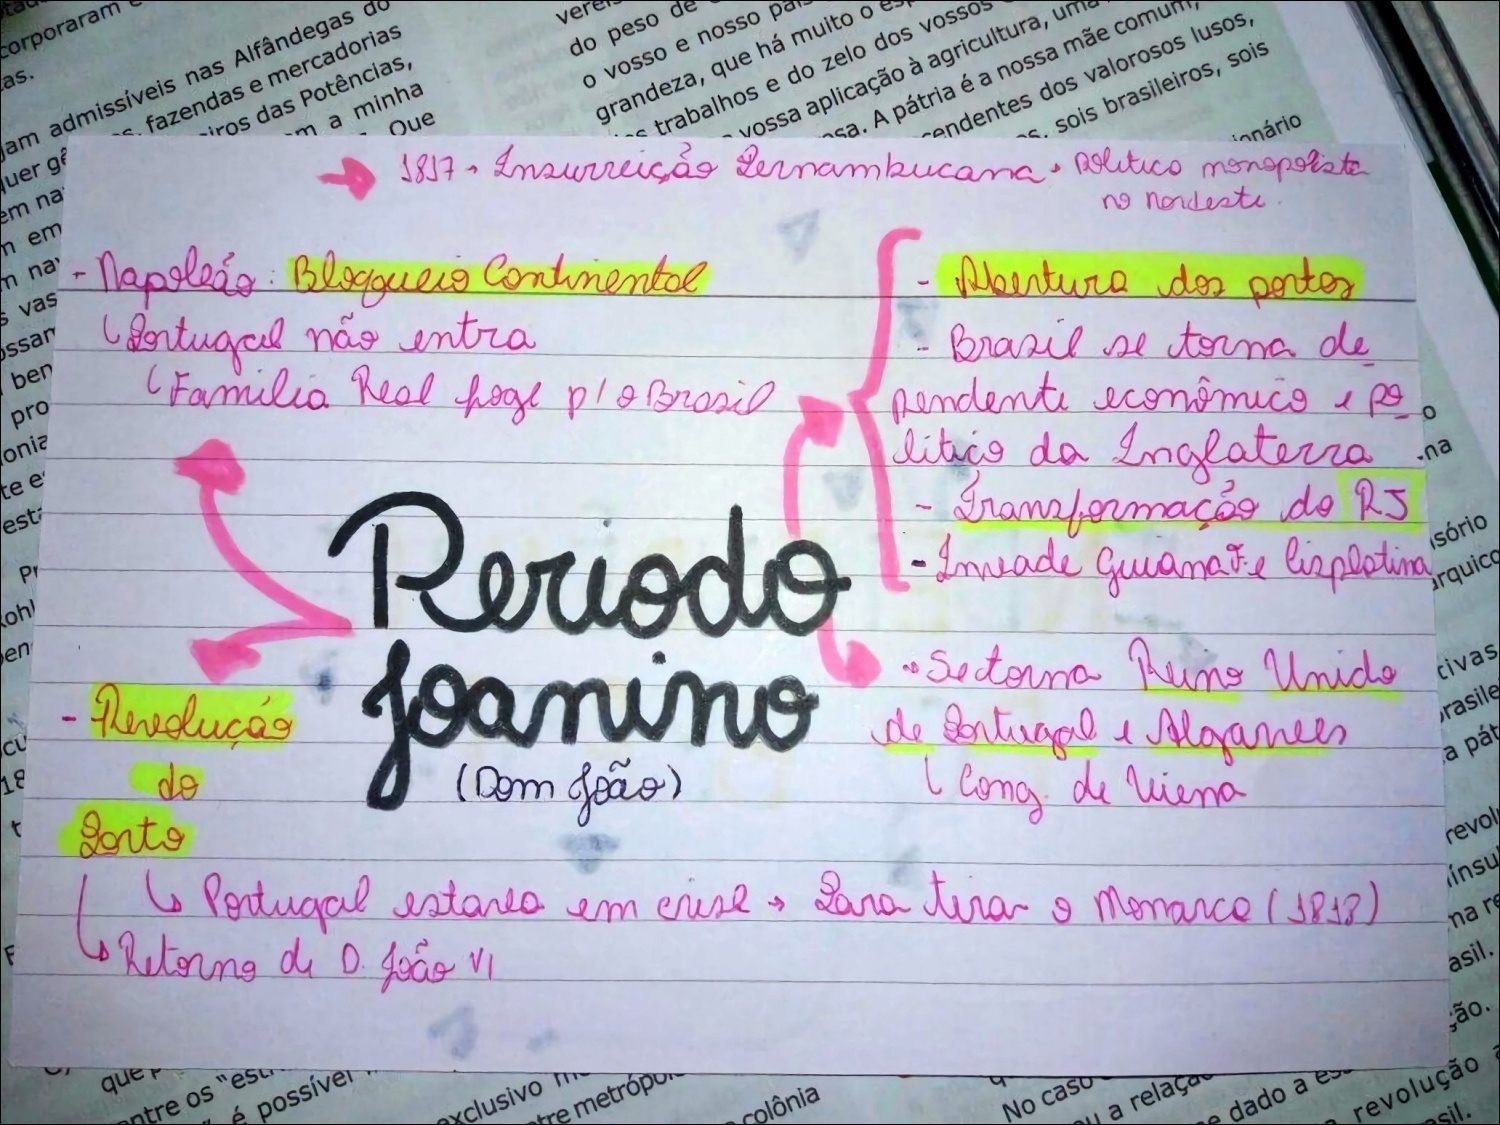 corporaram e
as.
jam admissíveis nas Alfândegas do
s, fazendas e mercadorias
iros das Potências,
m a minha
Que
do peso de
o vosso e nosso país
grandeza, que há muito o es
os trabalhos e do zelo dos vossos
vossa aplicação à agricultura, uma
osa. A pátria é a nossa mãe comum,
cendentes dos valorosos lusos,
s, sois brasileiros, sois
ionário
→ 1817 → Insurreição Pernambucana → Politico monopolista
no nordeste.
- Napoleão: Bloqueio Continental
Portugal não entra
Família Real foge p/ o Brasil
- Abertura dos portos
- Brasil se torna de
pendente econômico e po
litico da Inglaterra
- Transformação do RJ
- Invade Guiana F. e Cisplatina
Periodo
Joanino
(Dom João)
→ Se torna Reino Unido
de Portugal e Algarves
Cong. de Viena
- Revolução
do
Porto
↳ Portugal estava em crise → Para tirar o Monarca (1818)
↳ Retorno de D. João VI
que
entre os "est
é possível
exclusivo
tre metrópo
colônia
No caso
u a relaçã
e dado a es
revolução a
sil.